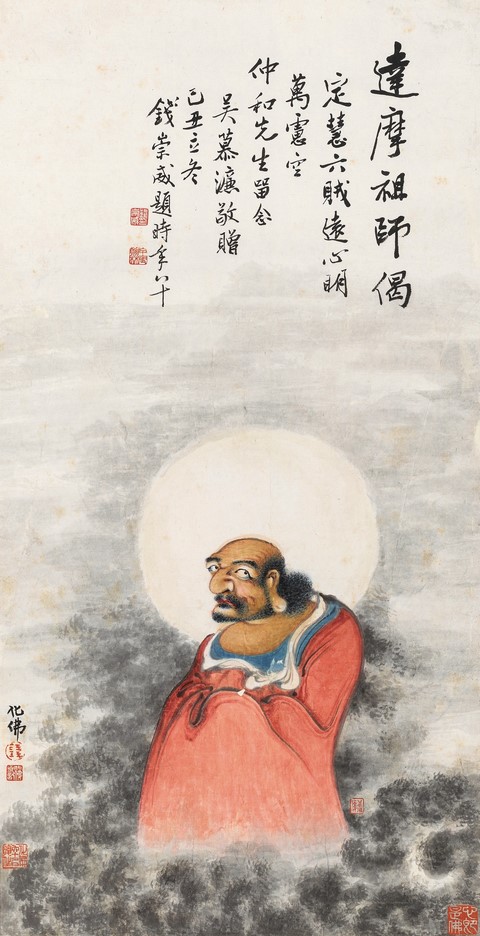 達摩祖師偈
定慧六賊遠心明
萬慮空
仲和先生留念
吳慕濂敬贈
己丑立冬
錢崇威題時年八十
化佛